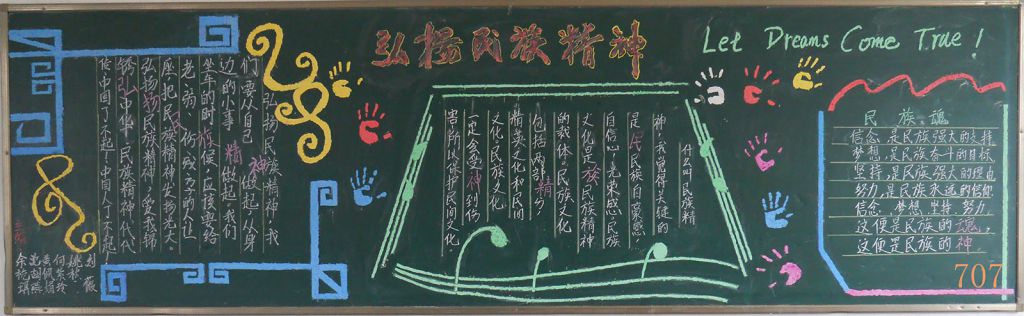 弘扬民族精神
Let Dreams Come True!
弘扬民族精神,我
们要从自己做起,从身
边的小事做起。我们
坐车的时候,应该要给
老、弱、伤、残之的人让
座,把民族精神发扬光大。
弘扬民族精神,爱我锦
锈中华,民族精神代代
传,中国了不起!中国人了不起!
什么叫民族精
神,我觉得关键的
是民族自豪感,
自信心,光荣感;民族
文化是民族精神
的载体,民族文化
包括两部分,
精英文化和民间
文化,民族文化
一定会受到伤
害所以保护民间文化。
民族魂
信念,是民族强大的支持
梦想,是民族奋斗的目标
坚持,是民族强大的理由
努力,是民族永远的信仰
信念,梦想,坚持,努力,
这便是民族的魂,
这便是民族的神。
707